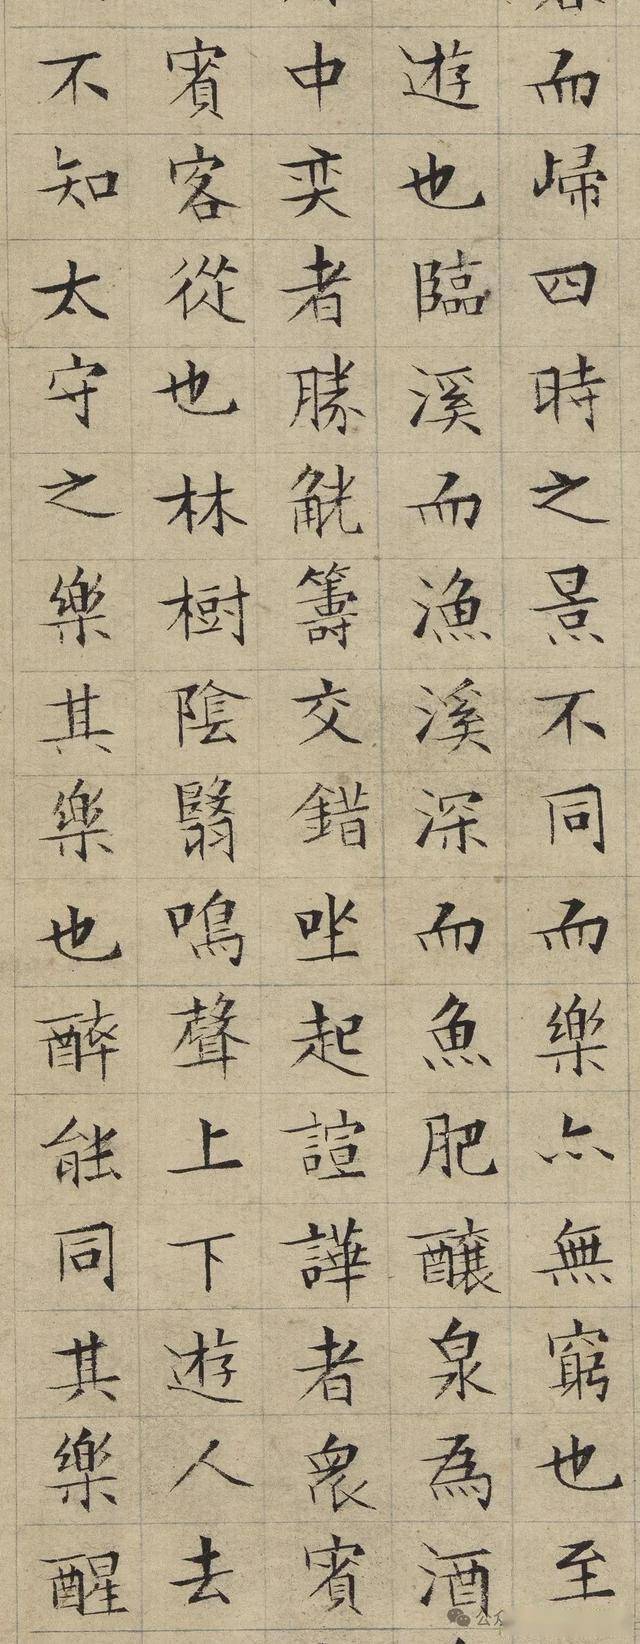 而歸四時之景不同而樂亦無窮也至
遊也臨溪而漁溪深而魚肥釀泉為酒
中奕者勝觥籌交錯坐起諠譁者衆賓
賓客從也林樹陰翳鳴聲上下遊人去
不知太守之樂其樂也醉能同其樂醒